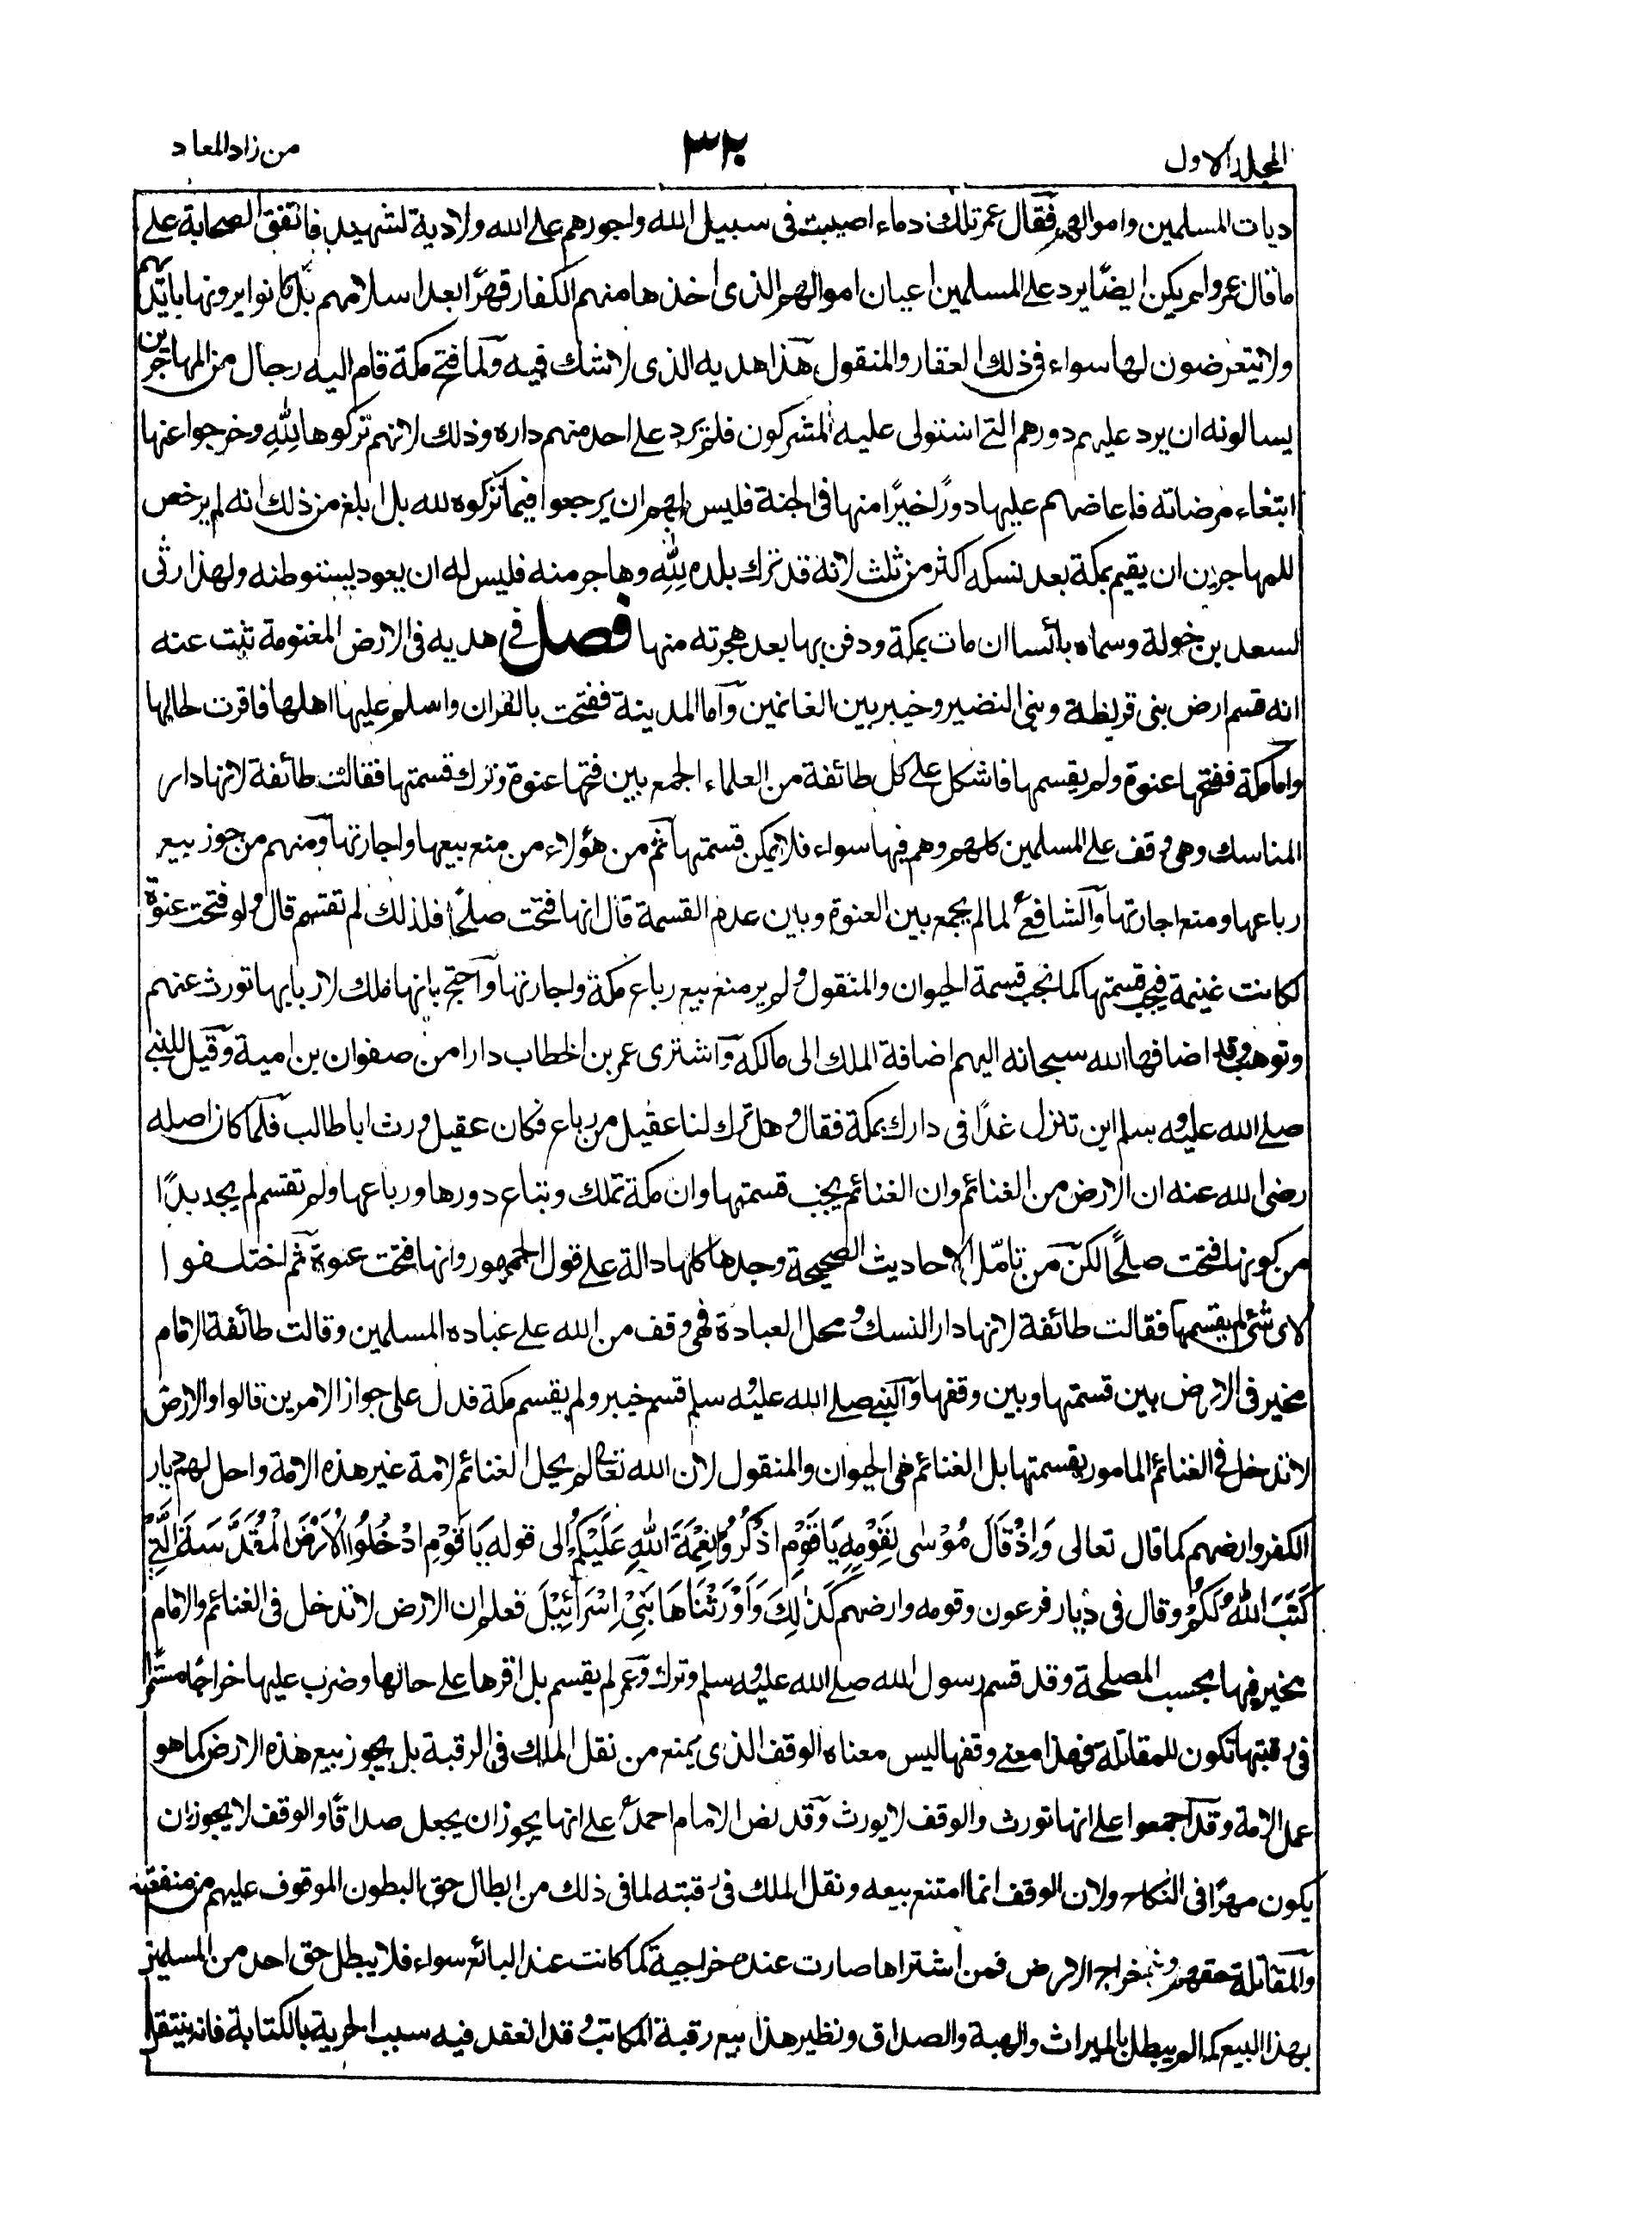 المجلد الاول
٣٢٠
من زاد المعاد
ديات المسلمين واموالهم فقال عمر تلك دماء اصيبت فى سبيل الله واجورهم على الله ولا دية لشهيد فاتفق الصحابة على
ما قال عمر ولم يكن ايضًا يرد على المسلمين اعيان اموالهم الذى اخذها منهم الكفار قهرًا بعد اسلامهم بل كانوا يرونها بايديهم
ولا يتعرضون لها سواء فى ذلك العقار والمنقول هذا هديه الذى لا شك فيه ولما فتح مكة قام اليه رجال من المهاجرين
يسالونه ان يرد عليهم دورهم التے استولى عليه المشركون فلم يرد على احد منهم داره وذلك لانهم تركوها لِلّهِ وخرجوا عنها
ابتغاء مرضاته فاعاضهم عليها دورًا خيرًا منها فى الجنة فليس لهم ان يرجعوا فيما تركوه لله بل ابلغ من ذلك انه لم يرخص
للمهاجرين ان يقيم بمكة بعد نسكه اكثر من ثلث لانه قد ترك بلده لِلّهِ وهاجر منه فليس له ان يعود يستوطنه ولهذا رثى
لسعد بن خولة وسماه بائسا ان مات بمكة ودفن بها بعد هجرته منها فصل فى هديه فى الارض المغنومة ثبت عنه
انه قسم ارض بنى قريظة وبنى النضير وخيبر بين الغانمين واما المدينة ففتحت بالقران واسلم عليها اهلها فاقرت لحالها
واما مكة ففتحها عنوة ولم يقسمها فاشكل على كل طائفة من العلماء الجمع بين فتحها عنوة وترك قسمتها فقالت طائفة لانها دار
المناسك وهى وقف على المسلمين كلهم وهم فيها سواء فلا يمكن قسمتها ثم من هؤلاء من منع بيعها واجارتها ومنهم من جوز بيع
رباعها ومنع اجارتها والشافعى لما لم يجمع بين العنوة وبين عدم القسمة قال انها فتحت صلحًا فلذلك لم تقتسم قال ولو فتحت عنوة
لكانت غنيمة فيجب قسمتها كما تجب قسمة الحيوان والمنقول ولم ير منع بيع رباع مكة واجارتها واحتج بانها ملك لاربابها تورث عنهم
وتوهب وقد اضافها الله سبحانه اليهم اضافة الملك الى مالكه واشترى عمر بن الخطاب دارا من صفوان بن امية وقيل للنبے
صلے الله عليه وسلم اين تنزل غدًا فى دارك بمكة فقال وهل ترك لنا عقيل من رباع فكان عقيل ورث ابا طالب فلما كان اصله
رضى الله عنه ان الارض من الغنائم وان الغنائم يجب قسمتها وان مكة تملك وتباع دورها ورباعها ولم تقتسم لم يجد بدًا
من كونها فتحت صلحًا لكن من تامل الاحاديث الصحيحة وجدها كلها دالة على قول الجمهور وانها فتحت عنوة ثم اختلفوا
لاى شئ لم يقسمها فقالت طائفة لانها دار النسك ومحل العبادة فهى وقف من الله على عباده المسلمين وقالت طائفة الامام
مخير فى الارض بين قسمتها وبين وقفها والنبے صلے الله عليه وسلم قسم خيبر ولم يقسم مكة فدل على جواز الامرين قالوا والارض
لا تدخل فى الغنائم المامور بقسمتها بل الغنائم هى الحيوان والمنقول لان الله تعالى لم يحل الغنائم لامة غير هذه الامة واحل لهم ديار
الكفر وارضهم كما قال تعالى وَاِذْ قَالَ مُوْسٰى لِقَوْمِهٖ يَا قَوْمِ اذْكُرُوْا نِعْمَةَ اللّٰهِ عَلَيْكُمْ الى قوله يَا قَوْمِ ادْخُلُوا الْاَرْضَ الْمُقَدَّسَةَ الَّتِيْ
كَتَبَ اللّٰهُ لَكُمْ وقال فى ديار فرعون وقومه وارضهم كَذٰلِكَ وَاَوْرَثْنَاهَا بَنِيْ اِسْرَائِيْلَ فعلم ان الارض لا تدخل فى الغنائم والامام
مخير فيها بحسب المصلحة وقد قسم رسول الله صلے الله عليه وسلم وترك وعمر لم يقسم بل اقرها على حالها وضرب عليها خراجًا مستمرا
فى رقبتها تكون للمقاتلة فهذا معنى وقفها ليس معناه الوقف الذى يمنع من نقل الملك فى الرقبة بل يجوز بيع هذه الارض كما هو
عمل الامة وقد اجمعوا على انها تورث والوقف لا يورث وقد نص الامام احمد على انها يجوز ان يجعل صداقًا والوقف لا يجوز ان
يكون مهرًا فى النكاح ولان الوقف انما امتنع بيعه ونقل الملك فى رقبته لما فى ذلك من ابطال حق البطون الموقوف عليهم من منفعته
والمقاتلة حقهم فى خراج الارض فمن اشتراها صارت عنده خراجية كما كانت عند البائع سواء فلا يبطل حق احد من المسلمين
بهذا البيع كما لم يبطل بالميراث والهبة والصداق ونظير هذا بيع رقبة المكاتب وقد انعقد فيه سبب الحرية بالكتابة فانه ينتقل